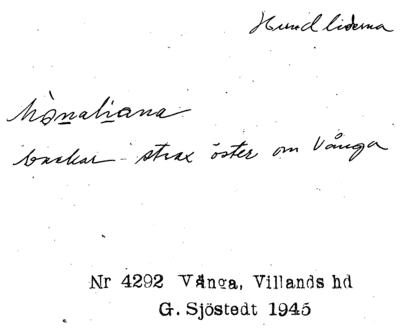 Hundliderna
hònaliana
backar strax öster om Vånga
Nr 4292 Vånga, Villands hd
G. Sjöstedt 1945